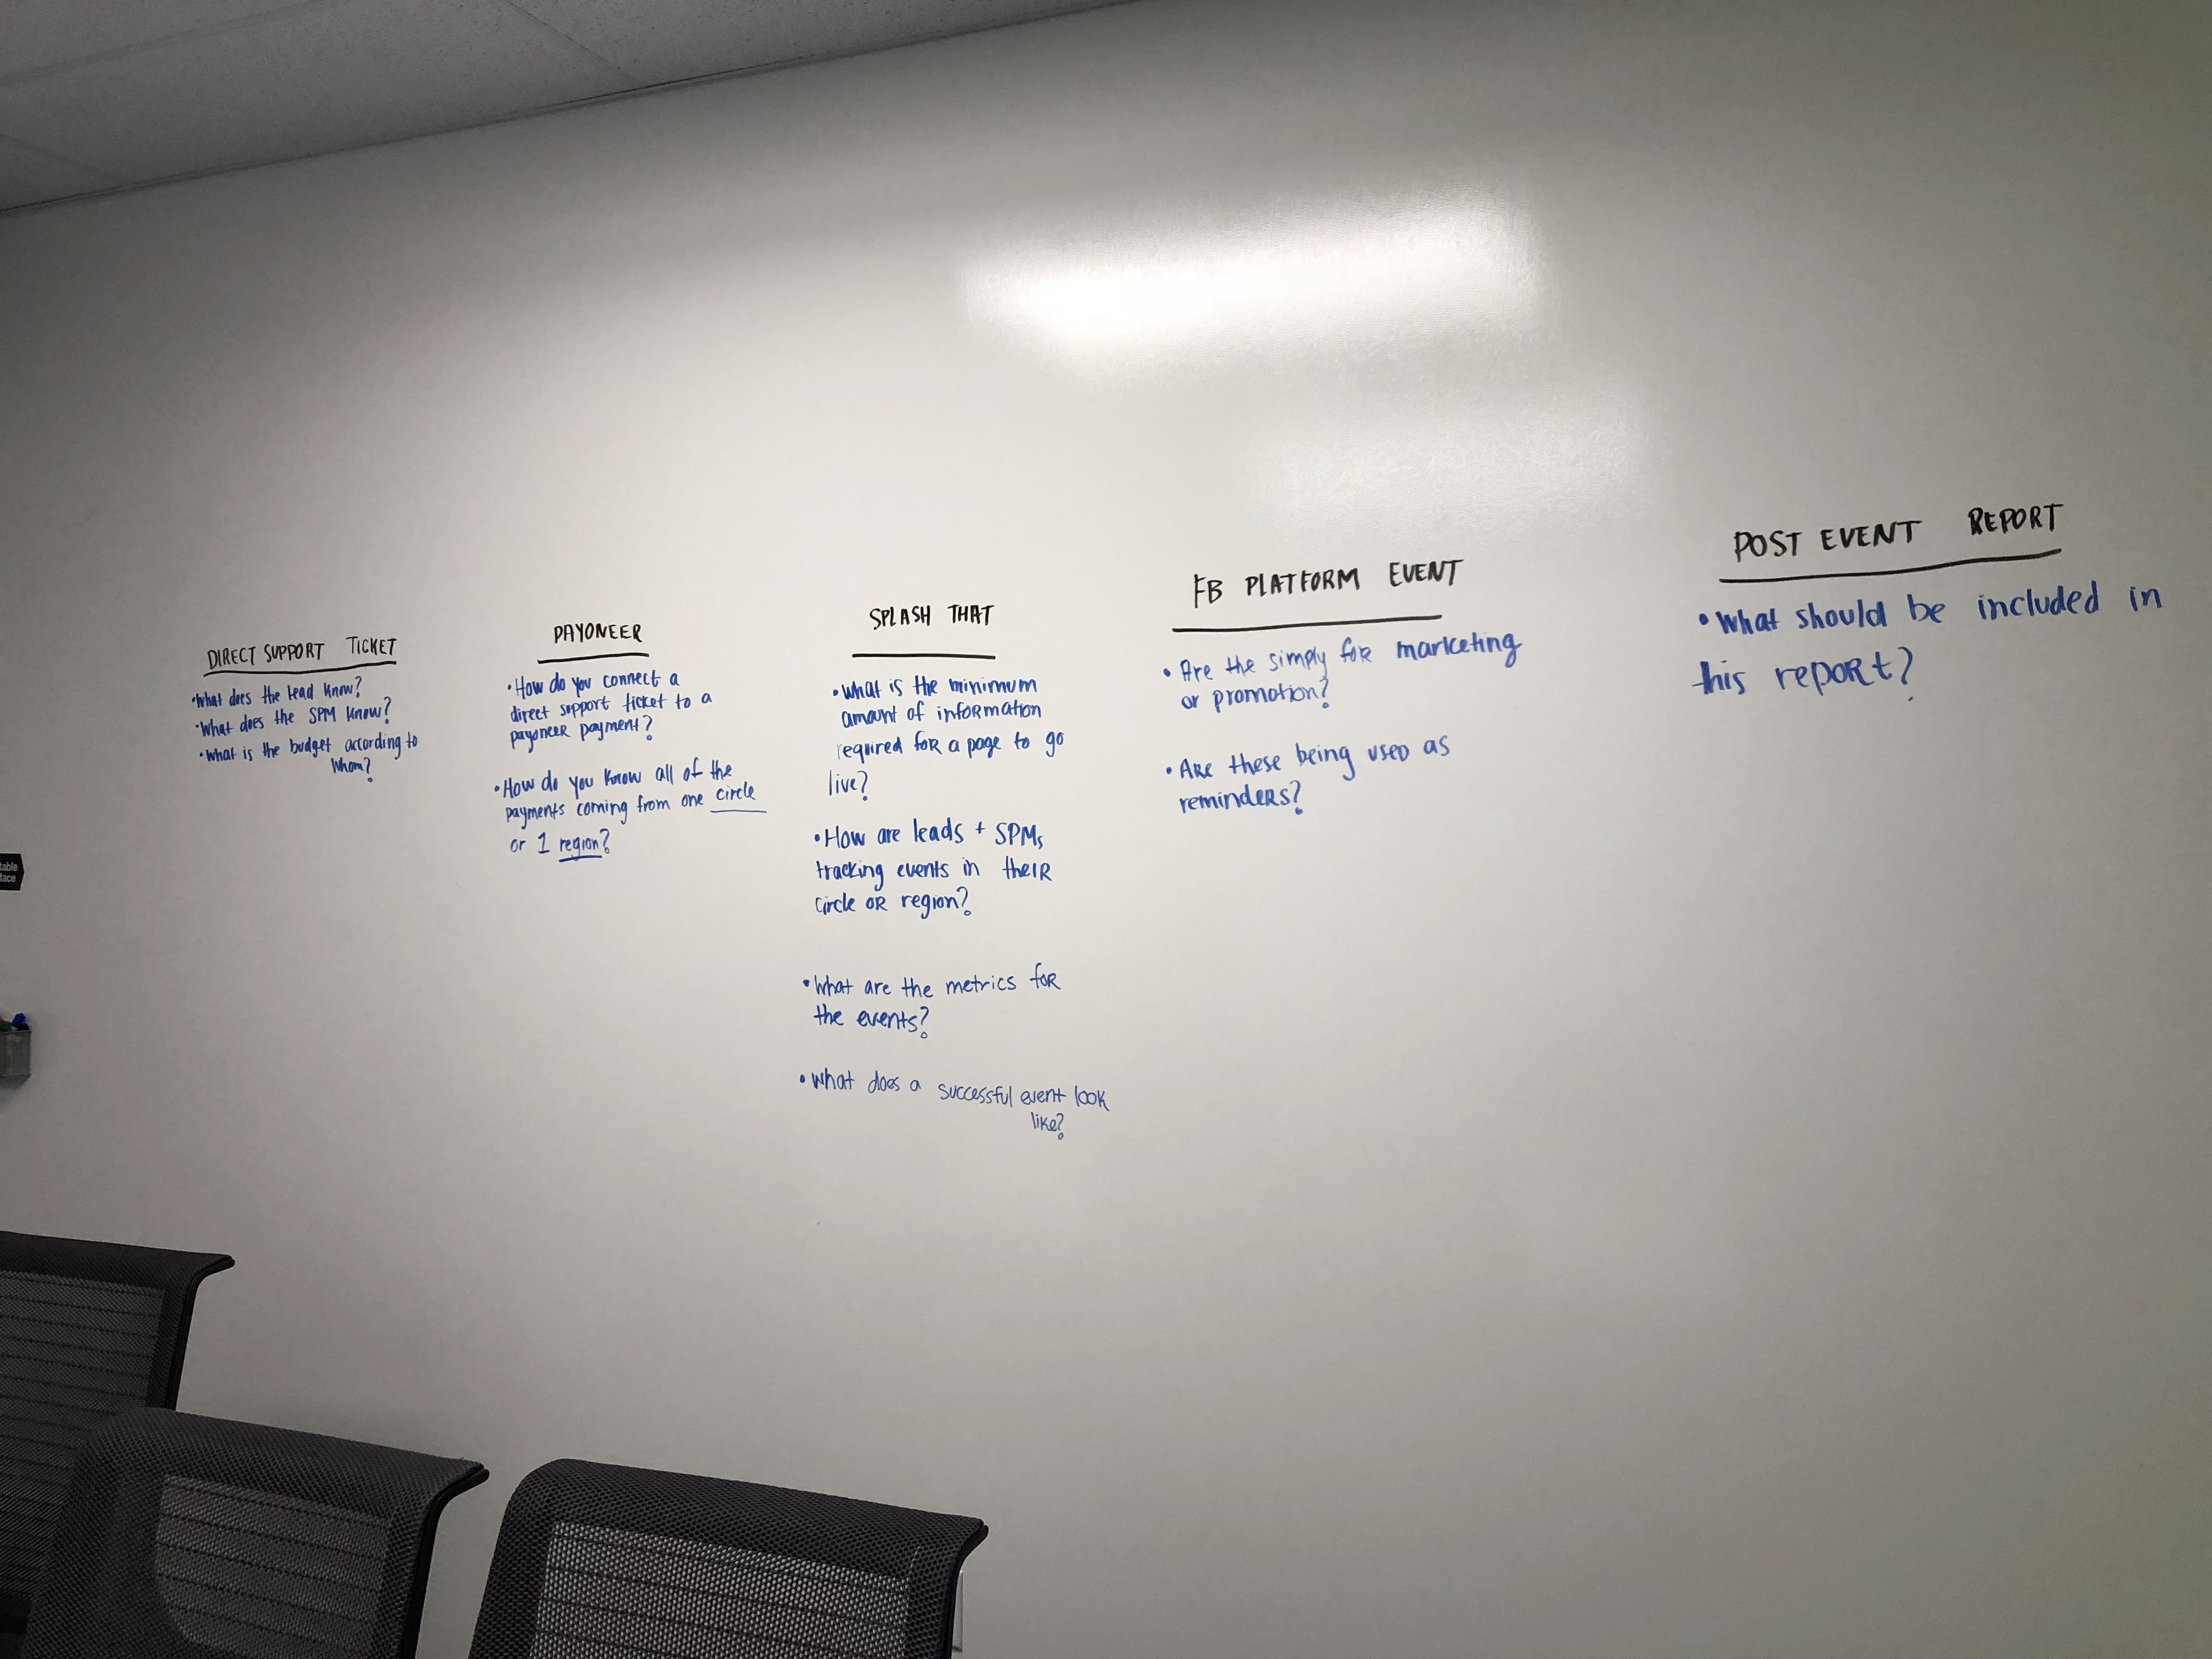 DIRECT SUPPORT TICKET
•What does the lead know?
•What does the SPM know?
•What is the budget according to
whom?
PAYONEER
•How do you connect a
direct support ticket to a
payoneer payment?
•How do you know all of the
payments coming from one circle
or 1 region?
SPLASH THAT
•What is the minimum
amount of information
required for a page to go
live?
•How are leads + SPMs
tracking events in their
circle or region?
•What are the metrics for
the events?
•What does a successful event look
like?
FB PLATFORM EVENT
•Are the simply for marketing
or promotion?
•Are these being used as
reminders?
POST EVENT REPORT
•What should be included in
this report?
table
face